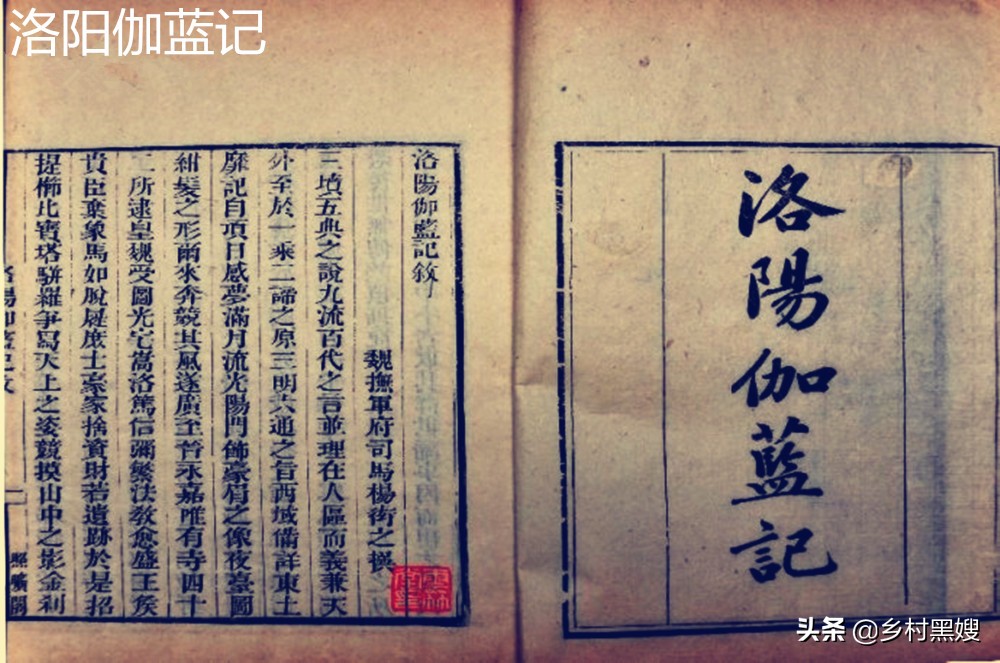 洛阳伽蓝记
洛陽伽藍記
洛陽伽藍記敘
魏撫軍府司馬楊衒之撰
三墳五典之說九流百代之言並理在人區而義兼天
外至於一乘二諦之原三明六通之旨西域備詳東土
靡記自項日感夢滿月流光陽門飾豪眉之像夜臺圖
紺髮之形爾來奔競其風遂廣至晉永嘉唯有寺四十
二所逮皇魏受圖光宅嵩洛篤信彌繁法教愈盛王侯
貴臣棄象馬如脫屣庶士豪家捨資財若遺跡於是招
提櫛比寶塔駢羅爭寫天上之姿競摸山中之影金剎
照曠閣
头条 @乡村黑嫂